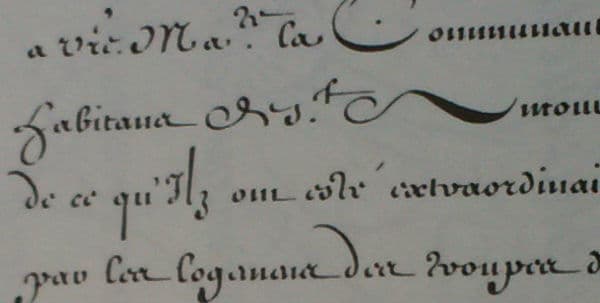 a vre. Ma.te la Communaut
habitans de s.t Anton
de ce qu'Ilz ont esté extraordinai
par les logemens des troupes d